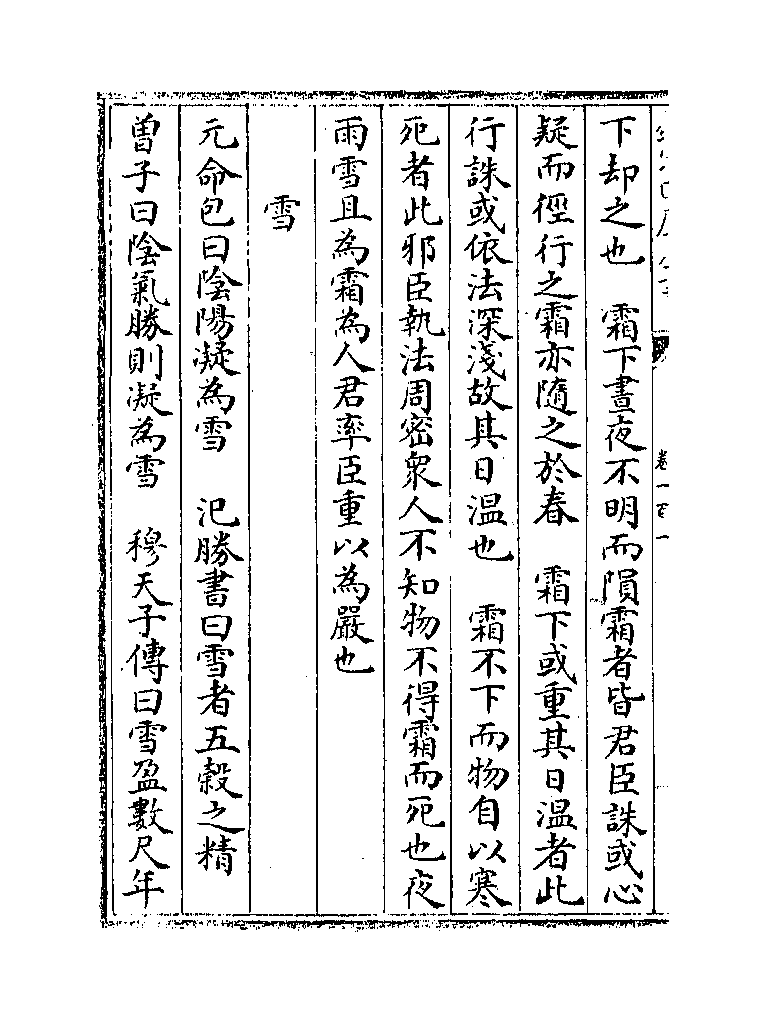 下却之也　霜下晝夜不明而隕霜者皆君臣誅或心
疑而徑行之霜亦隨之於春　霜下或重其日溫者此
行誅或依法深淺故其日溫也　霜不下而物自以寒
死者此邪臣執法周密衆人不知物不得霜而死也夜
雨雪且為霜為人君率臣重以為嚴也
雪
元命包曰陰陽凝為雪　氾勝書曰雪者五榖之精
曽子曰陰氣勝則凝為雪　穆天子傳曰雪盈數尺年
卷一百一